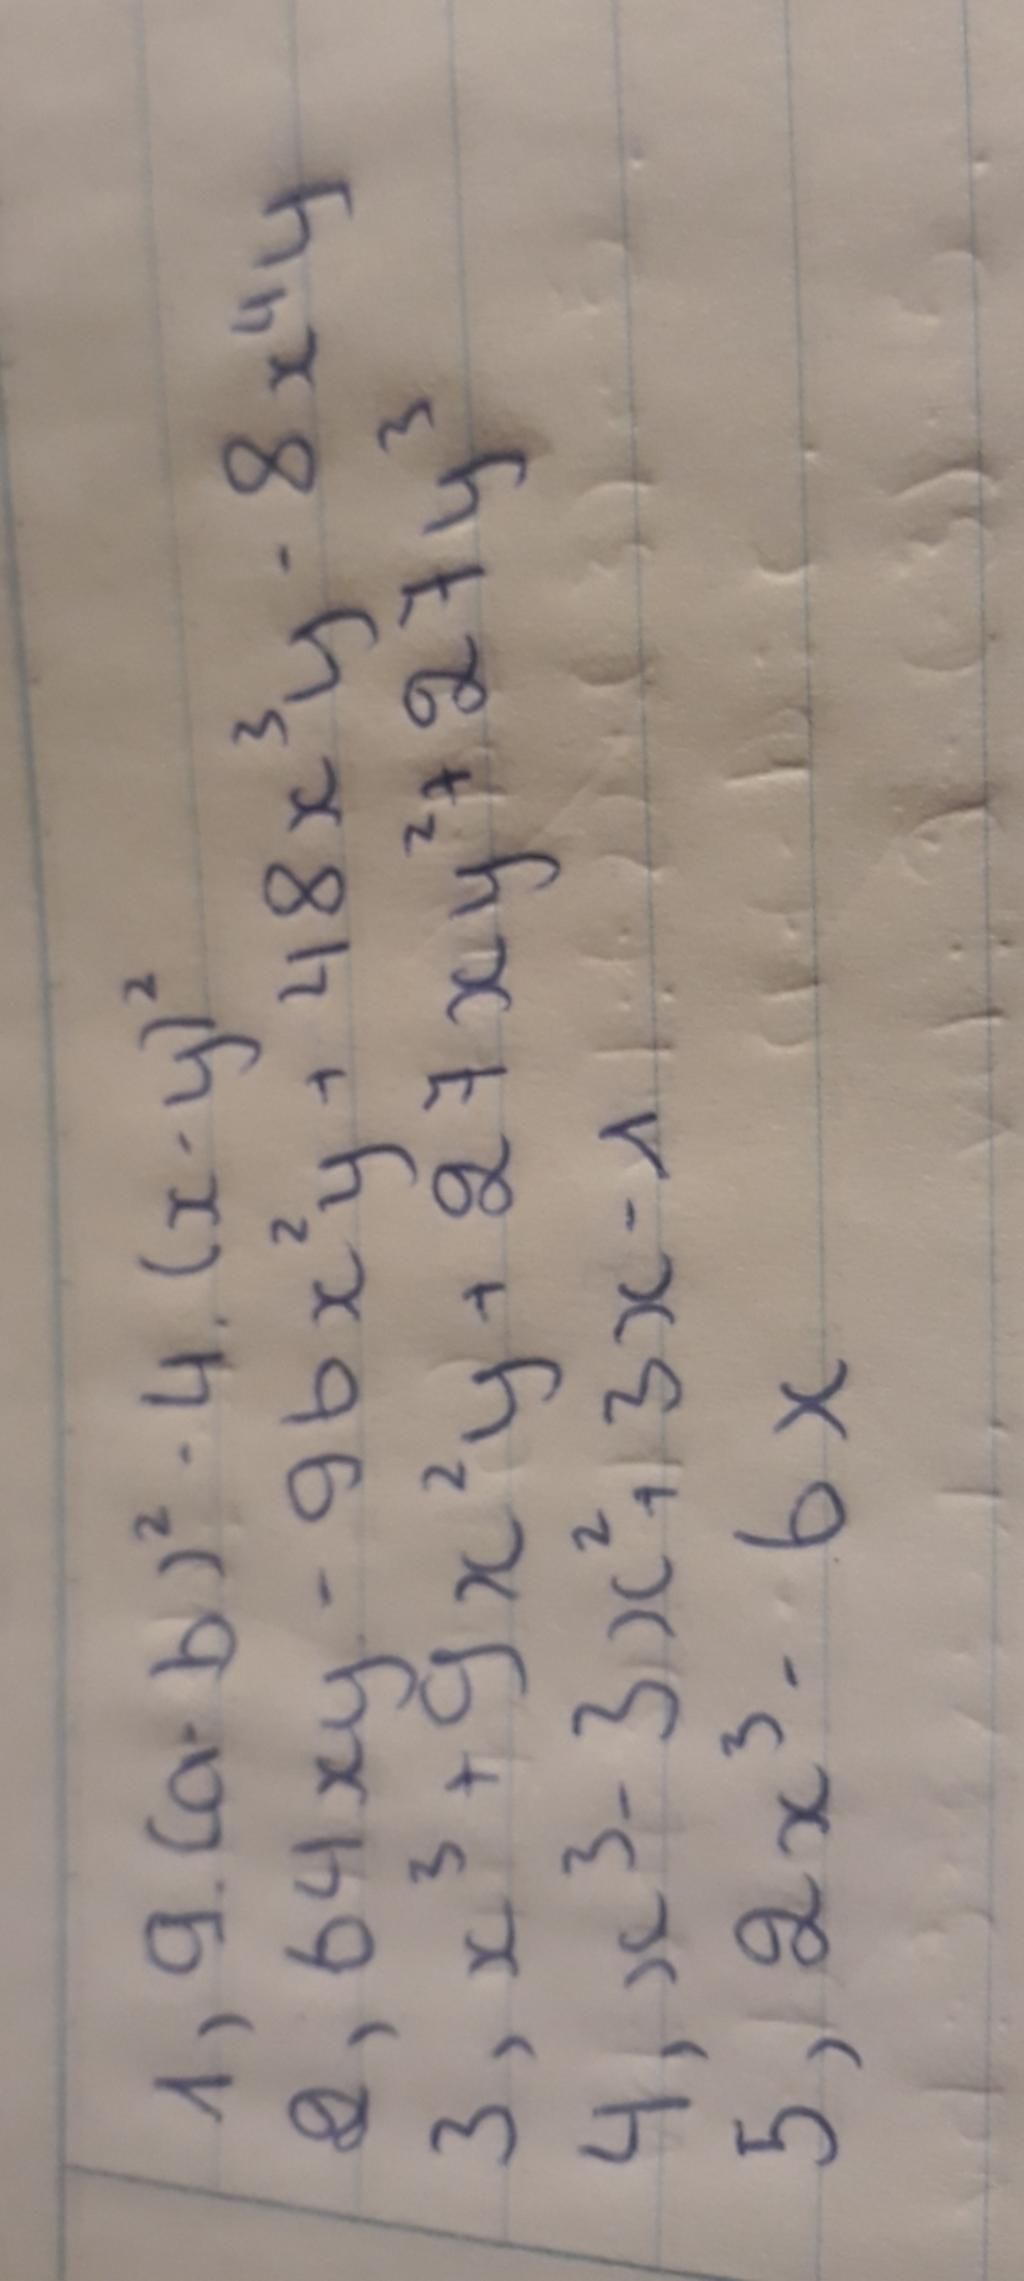 1, 9.(a-b)² - 4.(x-y)²
2, 64xy - 96x²y + 48x³y - 8x⁴y
3, x³ + 9x²y + 27xy² + 27y³
4, x³ - 3x² + 3x - 1
5, 2x³ - 6x